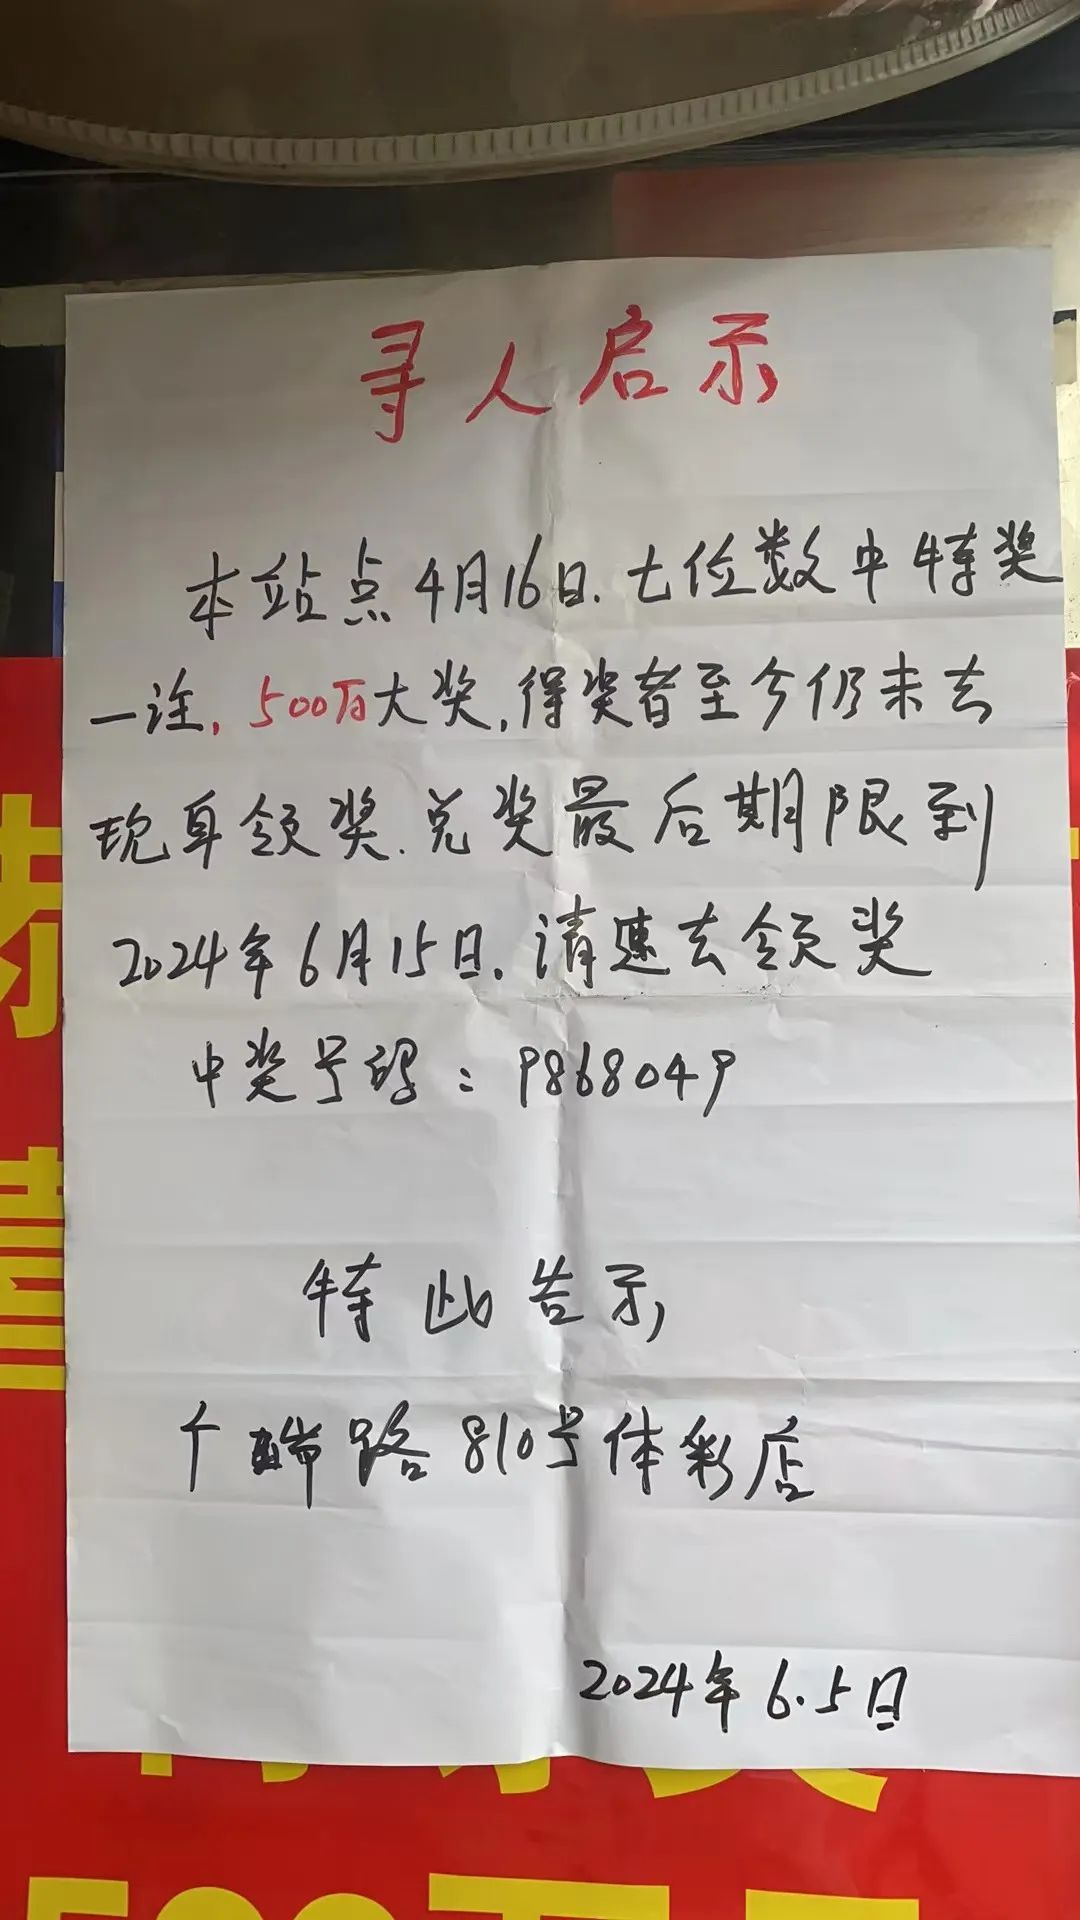 寻人启示
本站点4月16日.七位数中特奖
一注,500万大奖,得奖者至今仍未去
现身领奖.兑奖最后期限到
2024年6月15日.请速去领奖
中奖号码:9868049
特此告示
路810号体彩店
2024年6.5日